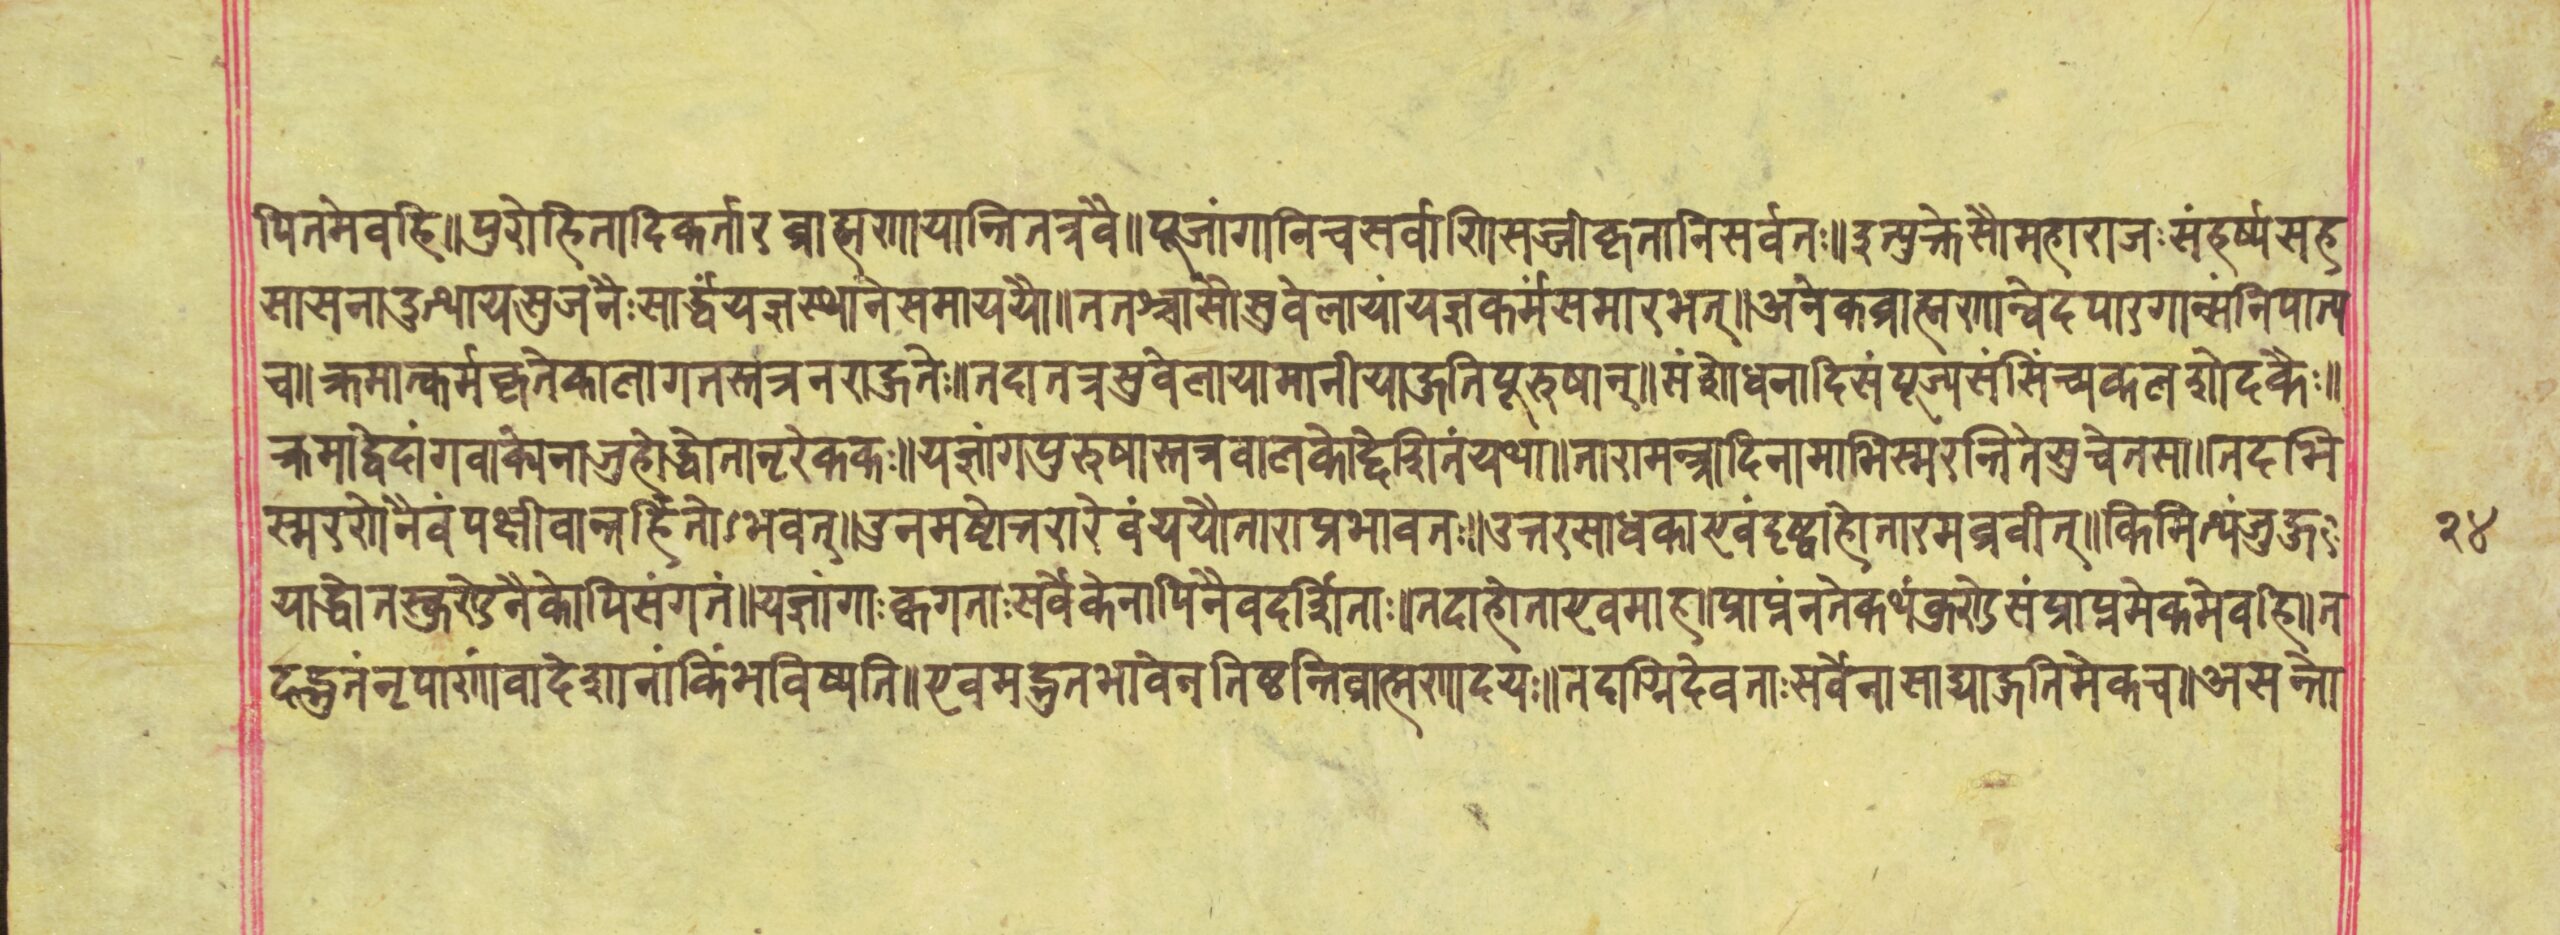 पितमेवहि॥पुरोहितादिकर्तारब्राह्मणायान्तितत्रवै॥पूजांगानिचसर्वाणिसज्जीकृतानिसर्वतः॥इत्युक्तेसौमहाराजःसंहर्ष्यसह
सासनादुत्थायसुजनैःसार्द्धंयज्ञस्थानेसमाययौ॥ततश्चासौसुवेलायांयज्ञकर्मसमारभत्॥अनेकब्राह्मणान्वेदपारगान्संनिपात्य
च॥क्रमात्कर्मकृतेकालागतस्तत्रनराहुतेः॥तदातत्रसुवेलायामानीयाहुतिपूरुषान्॥संशोधनादिसंपूज्यसंसिंच्यकलशोदकैः॥
क्रमाद्वेदांगवाक्येनाजुहोद्धोतानृरेककः॥यज्ञांगपुरुषास्तत्रवालकोद्देशितंयथा॥तारामन्त्रादिनामाभिस्मरन्तितेसुचेतसा॥तदभि
स्मरणेनैवंपक्षीवान्तर्हितोऽभवत्॥उनमष्टोत्तरारेवंययौताराप्रभावतः॥उत्तरसाधकाएवंदृष्ट्वाहोतारमब्रवीत्॥किमित्थंजुहु
याद्धोतस्कुण्डेनैकोपिसंगतं॥यज्ञांगाःक्वगताःसर्वेकेनापिनैवदर्शिताः॥तदाहोताएवमाह॥प्राप्तंनतेकथंकुण्डेसंप्राप्तमेकमेवहि॥त
दद्भुतंनृपाणांवादेशानांकिंभविष्यति॥एवमद्भुतभावेनतिष्ठन्तिब्राह्मणादयः॥तदाग्निदेवताःसर्वेनासाद्याहुतिमेकच॥असन्तो
२४